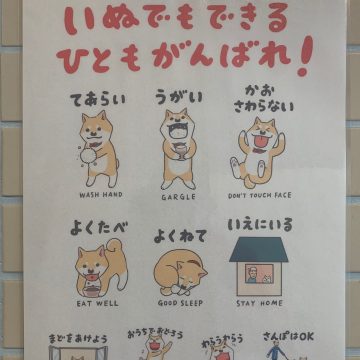 いぬでもできる
ひともがんばれ!
てあらい
WASH HAND
うがい
GARGLE
かお
さわらない
DON'T TOUCH FACE
よくたべ
EAT WELL
よくねて
GOOD SLEEP
いえにいる
STAY HOME
まどをあけよう
おうちでおどろう
わらうわらう
さんぽはOK